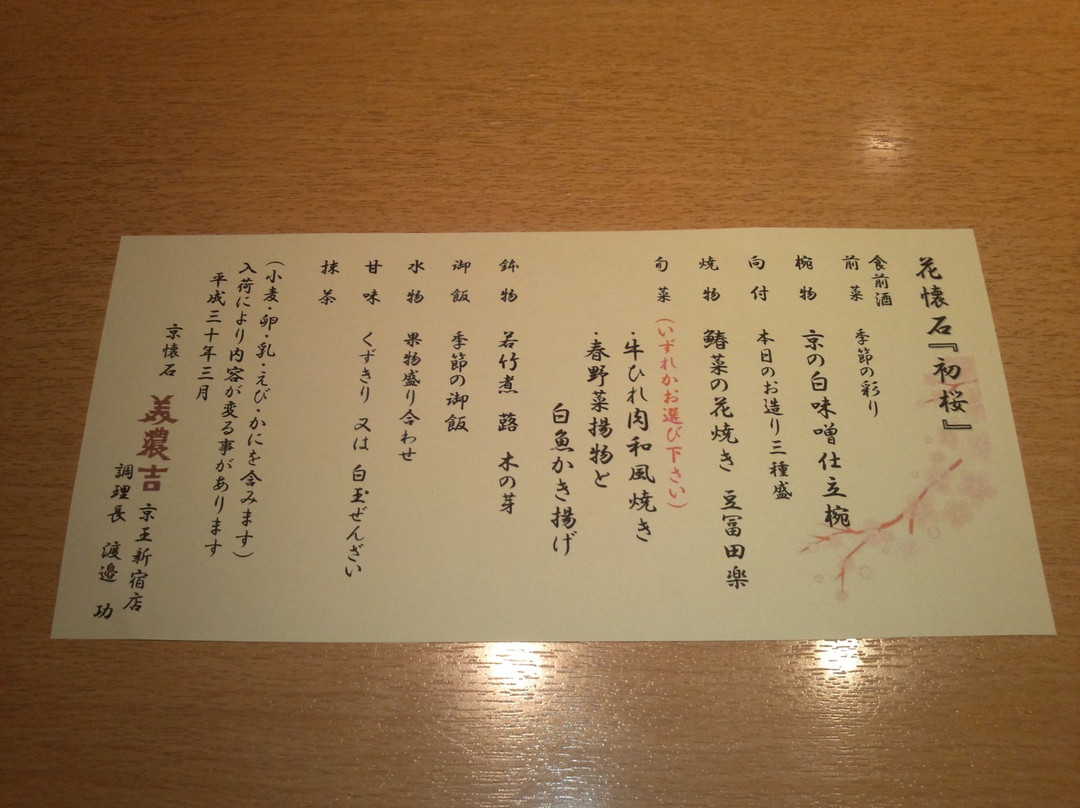 花懐石『初桜』
食前酒
前菜 季節の彩り
椀物 京の白味噌仕立椀
向付 本日のお造り三種盛
焼物 鰆菜の花焼き 豆冨田楽
旬菜 (いずれかお選び下さい)
・牛ひれ肉和風焼き
・春野菜揚物と
白魚かき揚げ
鉢物 若竹煮 蕗 木の芽
御飯 季節の御飯
水物 果物盛り合わせ
甘味 くずきり 又は 白玉ぜんざい
抹茶
(小麦・卵・乳・えび・かにを含みます)
入荷により内容が変る事があります
平成三十年三月
京懐石 美濃吉 京王新宿店
調理長 渡邉 功